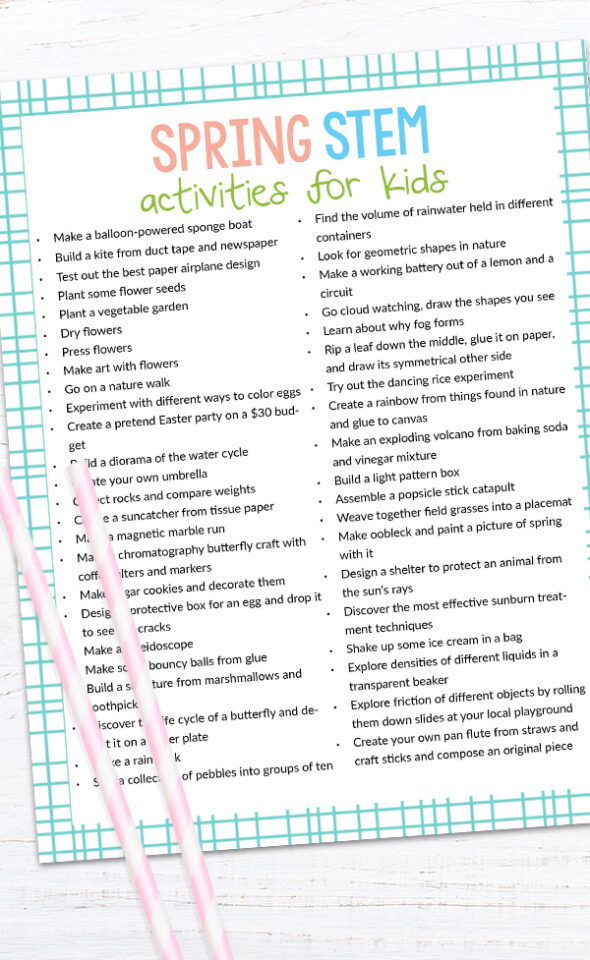 SPRING STEM
activities for kids
• Make a balloon-powered sponge boat
• Build a kite from duct tape and newspaper
• Test out the best paper airplane design
• Plant some flower seeds
• Plant a vegetable garden
• Dry flowers
• Press flowers
• Make art with flowers
• Go on a nature walk
• Experiment with different ways to color eggs
• Create a pretend Easter party on a $30 bud-
get
• a diorama of the water cycle
• your own umbrella
• rocks and compare weights
• a suncatcher from tissue paper
• a magnetic marble run
• chromatography butterfly craft with
and markers
• cookies and decorate them
• protective box for an egg and drop it
to see cracks
Make a
Make bouncy balls from glue
Build a from marshmallows and
cycle of a butterfly and de-
it on a plate
• a
• a of pebbles into groups of ten
• Find the volume of rainwater held in different
containers
• Look for geometric shapes in nature
• Make a working battery out of a lemon and a
circuit
• Go cloud watching, draw the shapes you see
• Learn about why fog forms
• Rip a leaf down the middle, glue it on paper,
and draw its symmetrical other side
• Try out the dancing rice experiment
• Create a rainbow from things found in nature
and glue to canvas
• Make an exploding volcano from baking soda
and vinegar mixture
• Build a light pattern box
• Assemble a popsicle stick catapult
• Weave together field grasses into a placemat
• Make oobleck and paint a picture of spring
with it
• Design a shelter to protect an animal from
the sun's rays
• Discover the most effective sunburn treat-
ment techniques
• Shake up some ice cream in a bag
• Explore densities of different liquids in a
transparent beaker
• Explore friction of different objects by rolling
them down slides at your local playground
• Create your own pan flute from straws and
craft sticks and compose an original piece